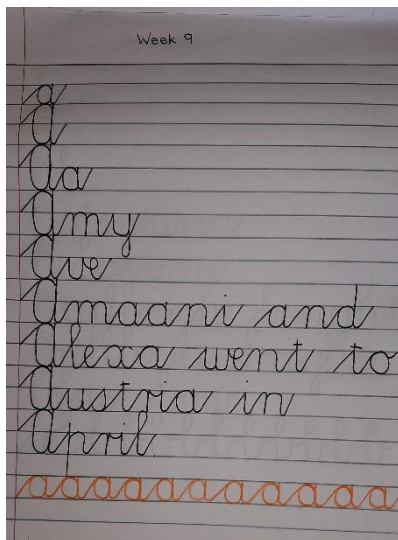 Week 9
a
A
Aa
Amy
Ave
Amaani and
Alexa went to
Austria in
April.
aaaaaaaaaaaa